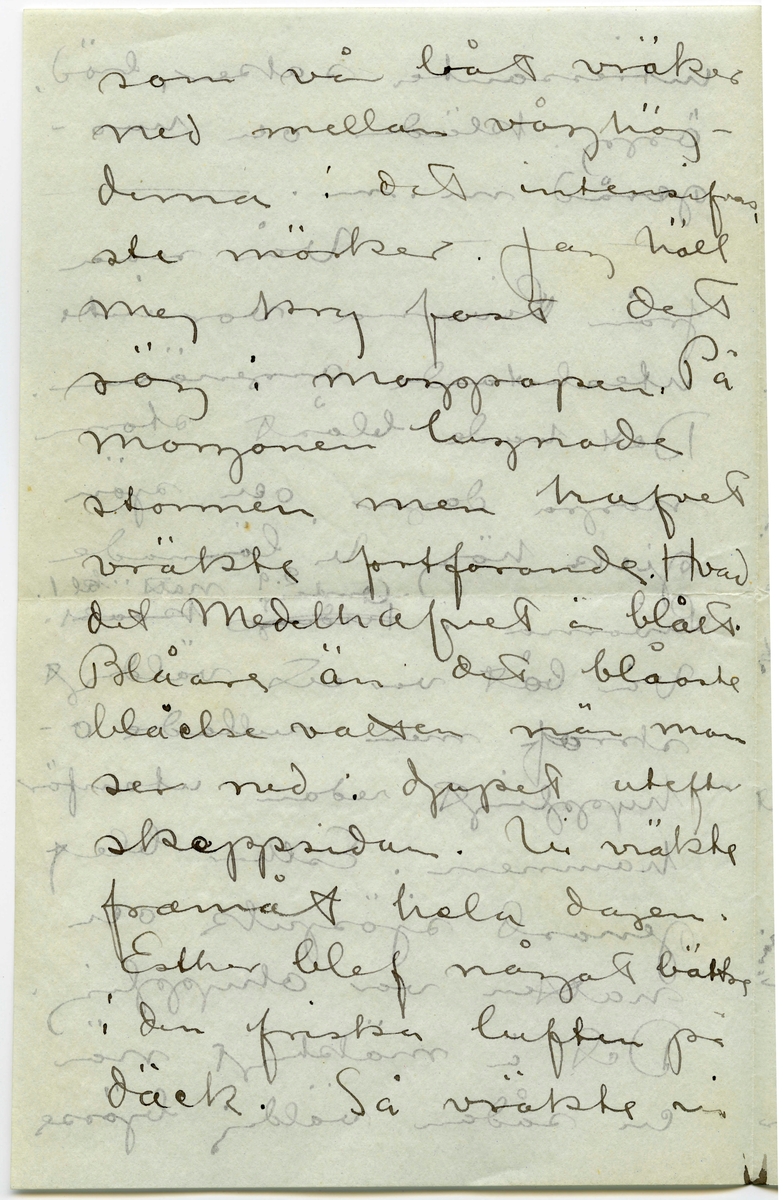 som vår båt vräker
ned mellan våghög-
derna i det intensifvas-
ste mörker. Jag höll
mej kry fast det
sög i maggropen. På
morgonen lugnade
stormen men hafvet
vräkte fortfarande. Hvad
det Medelhafvet är blått.
Blåare än det blåaste
blåelse vatten när man
ser ned i djupet utefter
skeppsidan. Vi vräkte
framåt hela dagen.
Esther blef något bättre
i den friska luften på
däck. Så vräkte vi